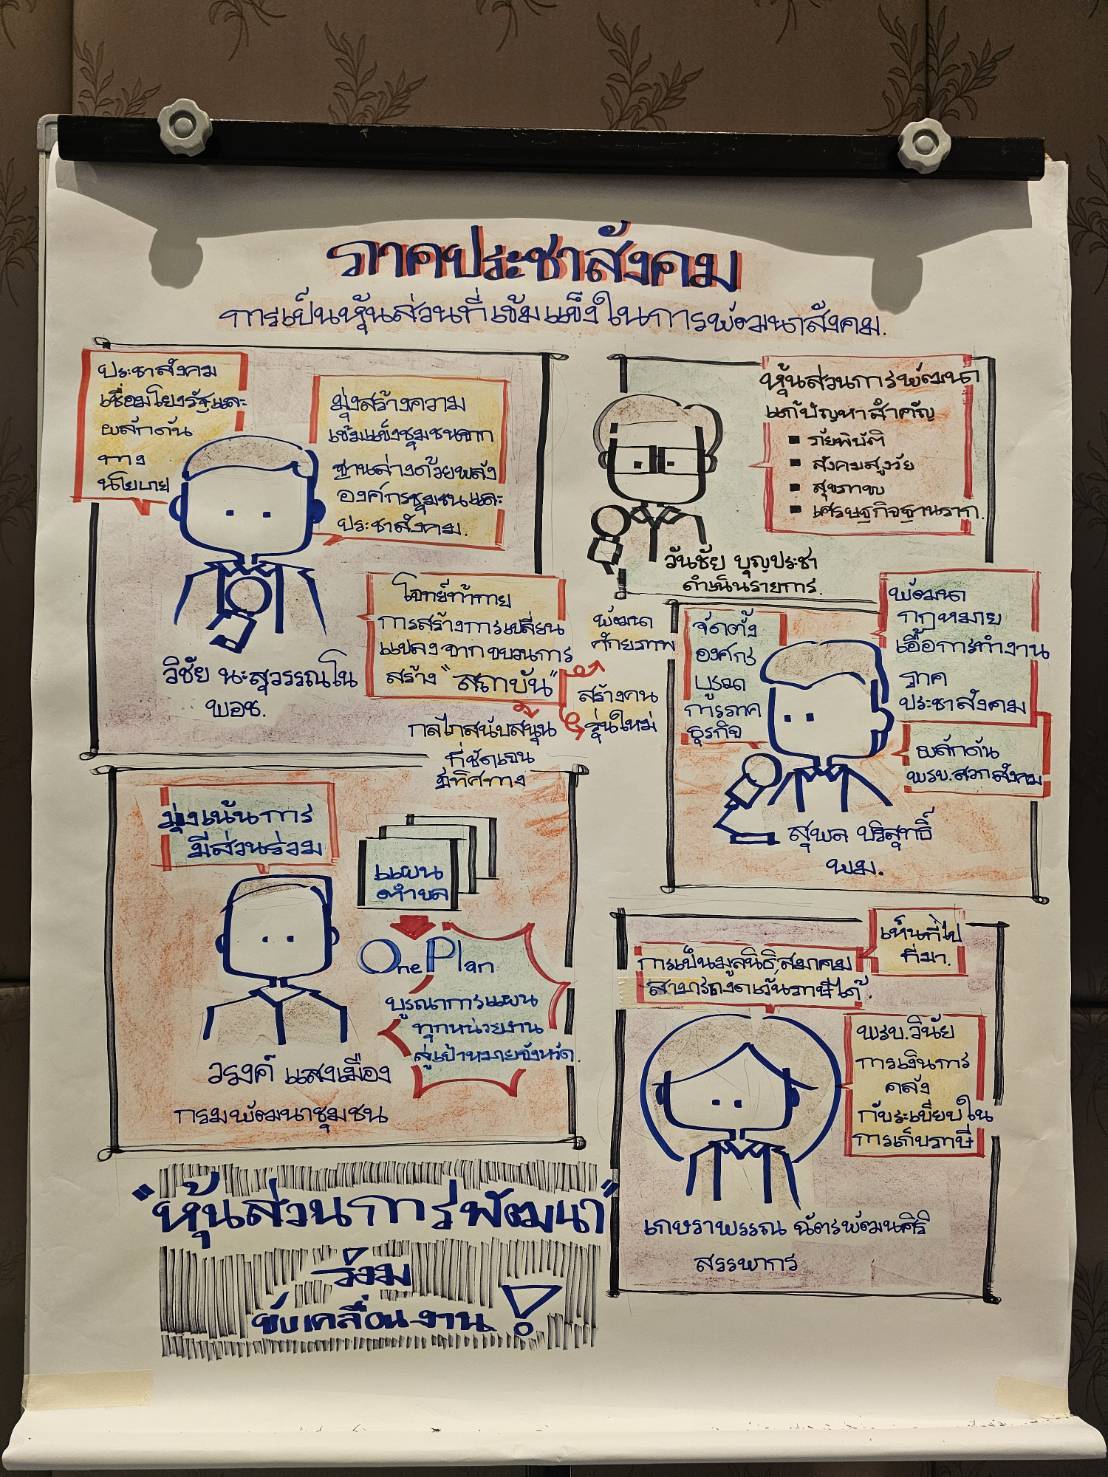 ภาคประชาสังคม
การเป็นหุ้นส่วนที่เข้มแข็งในการพัฒนาสังคม.
ประชาสังคม
เชื่อมโยงรัฐและ
ผลักดัน
ทาง
นโยบาย
มุ่งสร้างความ
เข้มแข็งชุมชนจาก
ฐานล่างด้วยพลัง
องค์กรชุมชนและ
ประชาสังคม.
โจทย์ท้าทาย
การสร้างการเปลี่ยน
แปลง จากขบวนการ
สร้าง "สถาบัน"
วิชัย นะสุวรรณโน
พอช.
พัฒนา
ศักยภาพ
สร้างคน
รุ่นใหม่
กลไกสนับสนุน
ที่ชัดเจน
มีทิศทาง
หุ้นส่วนการพัฒนา
แก้ปัญหาสำคัญ
▪ ภัยพิบัติ
▪ สังคมสูงวัย
▪ สุขภาพ
▪ เศรษฐกิจฐานราก.
วันชัย บุญประชา
ดำเนินรายการ.
จัดตั้ง
องค์กร
บูรณา
การภาค
ธุรกิจ
พัฒนา
กฎหมาย
เอื้อการทำงาน
ภาค
ประชาสังคม
ผลักดัน
พรบ.สภาสังคม
สุพล บริสุทธิ์
พม.
มุ่งเน้นการ
มีส่วนร่วม
แผน
ตำบล
One Plan
บูรณาการแผน
ทุกหน่วยงาน
สู่เป้าหมายจังหวัด.
วรงค์ แสงเมือง
กรมพัฒนาชุมชน
เห็นที่ไป
ที่มา.
การเป็นมูลนิธิ,สมาคม
สามารถงดเว้นภาษีได้.
พรบ.วินัย
การเงินการ
คลัง
กับระเบียบใน
การเก็บภาษี
เกษราพรรณ ฉัตรพัฒนศิริ
สรรพากร
"หุ้นส่วนการพัฒนา"
ร่วม
ขับเคลื่อนงาน!